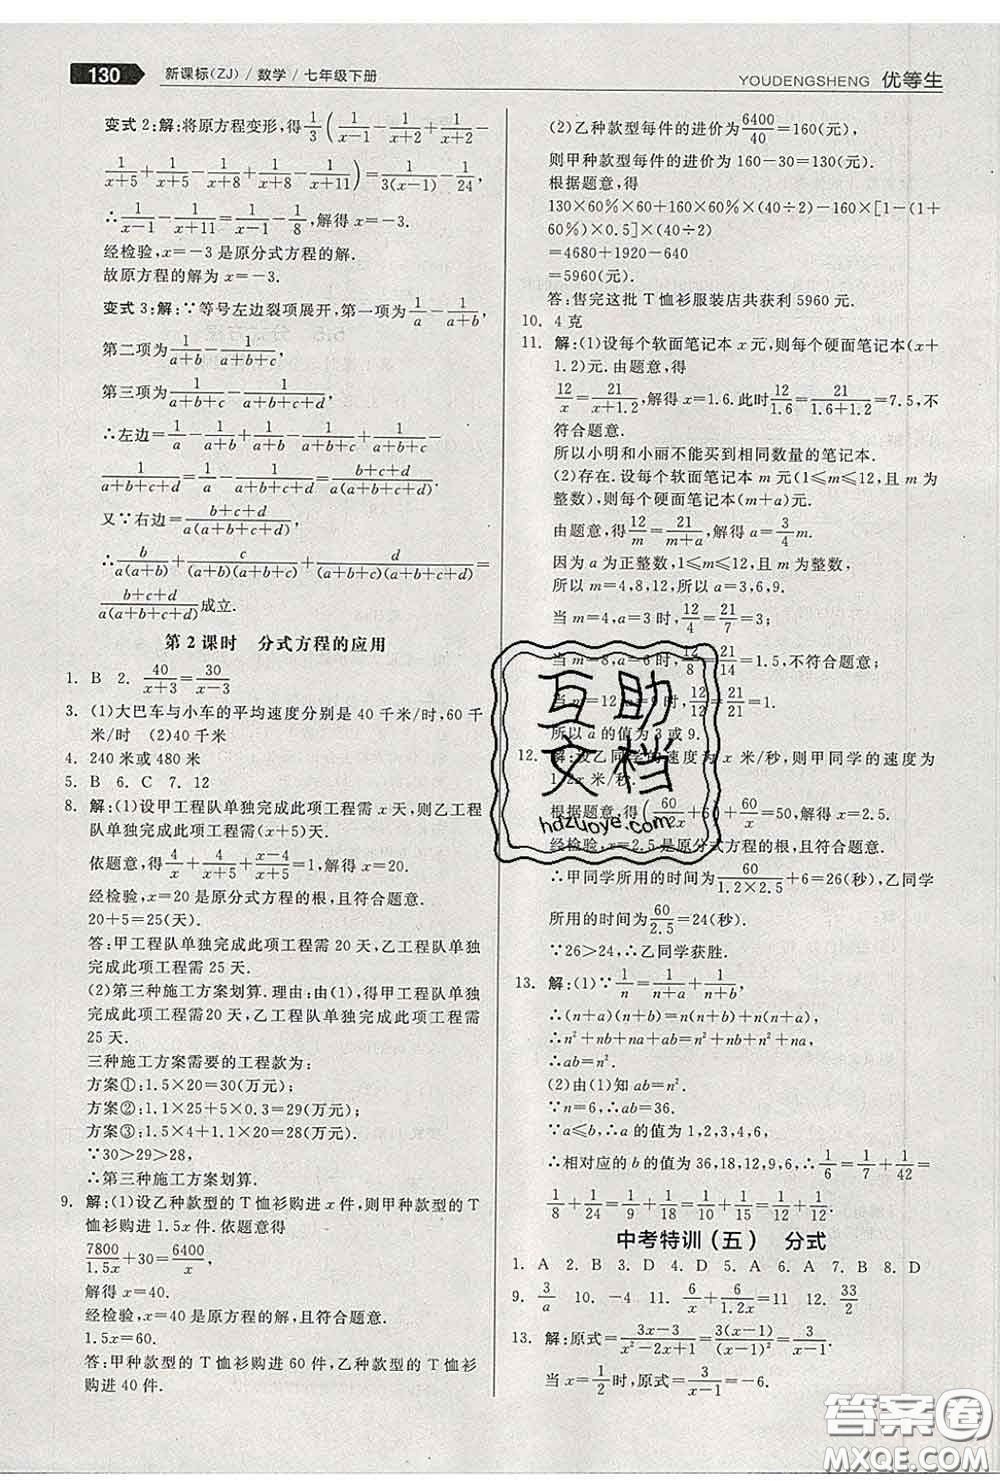 130 新课标(ZJ)/数学/七年级下册
YOUDENGSHENG 优等生
变式2:解:将原方程变形,得1/3(1/(x-1)-1/(x+2)+1/(x+2)-
1/(x+5)+1/(x+5)-1/(x+8)+1/(x+8)-1/(x+11))=1/(3(x-1))-1/24,
∴1/(x-1)-1/(x+11)=1/(x-1)-1/8,解得x=-3.
经检验,x=-3是原分式方程的解.
故原方程的解为x=-3.
变式3:解:∵等号左边裂项展开,第一项为1/a-1/(a+b),
第二项为1/(a+b)-1/(a+b+c),
第三项为1/(a+b+c)-1/(a+b+c+d),
∴左边=1/a-1/(a+b)+1/(a+b)-1/(a+b+c)+1/(a+b+c)-
1/(a+b+c+d)=1/a-1/(a+b+c+d)=(b+c+d)/(a(a+b+c+d)).
又∵右边=(b+c+d)/(a(a+b+c+d)),
∴b/(a(a+b))+c/((a+b)(a+b+c))+d/((a+b+c)(a+b+c+d))=
(b+c+d)/(a(a+b+c+d))成立.
第2课时 分式方程的应用
1. B 2. 40/(x+3)=30/(x-3)
3. (1)大巴车与小车的平均速度分别是40千米/时,60千
米/时 (2)40千米
4. 240米或480米
5. B 6. C 7. 12
8. 解:(1)设甲工程队单独完成此项工程需x天,则乙工程
队单独完成此项工程需(x+5)天.
依题意,得4/x+4/(x+5)+(x-4)/(x+5)=1,解得x=20.
经检验,x=20是原分式方程的解,且符合题意.
20+5=25(天).
答:甲工程队单独完成此项工程需20天,乙工程队单独
完成此项工程需25天.
(2)第三种施工方案划算.理由:由(1),得甲工程队单独
完成此项工程需20天,乙工程队单独完成此项工程需
25天.
三种施工方案需要的工程款为:
方案①:1.5×20=30(万元);
方案②:1.1×(20+5)... 
方案③:1.5×4+1.1×20=28(万元).
∵30>29>28,
∴第三种施工方案划算.
9. 解:(1)设乙种款型的T恤衫购进x件,则甲种款型的T
恤衫购进1.5x件.依题意得
7800/1.5x+30=6400/x,
解得x=40.
经检验,x=40是原方程的解,且符合题意.
1.5x=60.
答:甲种款型的T恤衫购进60件,乙种款型的T恤衫
购进40件.
(2)乙种款型每件的进价为6400/40=160(元),
则甲种款型每件的进价为160-30=130(元).
根据题意,得
130×60%×60+160×60%×(40÷2)-160×[1-(1+
60%)×0.5]×(40÷2)
=4680+1920-640
=5960(元).
答:售完这批T恤衫服装店共获利5960元.
10. 4克
11. 解:(1)设每个软面笔记本x元,则每个硬面笔记本(x+
1.2)元.由题意,得
12/x=21/(x+1.2),解得x=1.6.此时12/1.6=21/(1.6+1.2)=7.5,不
符合题意.
所以小明和小丽不能买到相同数量的笔记本.
(2)存在.设每个软面笔记本m元(1≤m≤12,且m为
整数),则每个硬面笔记本(m+a)元.
由题意,得12/m=21/(m+a),解得a=3/4m.
因为a为正整数,1≤m≤12,且m为整数,
所以m=4,8,12,所以a=3,6,9.
当m=4,a=3时,12/4=21/7=3;
当m=8,a=6时,=1.5,不符合题意;
=21/21=1.
所以a的值为3或9.
12. 解:设乙同学的速度为x米/秒,则甲同学的速度为
1.2x米/秒.
根据题意,得(60/1.2x+6)+60/x=50,解得x=2.5.
经检验,x=2.5是原分式方程的根,且符合题意.
∴甲同学所用的时间为60/(1.2×2.5)+6=26(秒),乙同学
所用的时间为60/2.5=24(秒).
∵26>24,∴乙同学获胜.
13. 解:(1)∵1/n=1/(n+a)+1/(n+b),
∴(n+a)(n+b)=n(n+b)+n(n+a),
∴n²+nb+na+ab=n²+nb+n²+na,
∴ab=n².
(2)由(1)知ab=n².
∵n=6,∴ab=36.
∵a≤b,∴a的值为1,2,3,4,6,
∴相对应的b的值为36,18,12,9,6,∴1/6=1/7+1/42=
1/8+1/24=1/9+1/18=1/10+1/15=1/12+1/12.
中考特训(五) 分式
1. A 2. B 3. D 4. D 5. A 6. A 7. B 8. D
9. 3/a 10. -4 11. 6/x+6/1.2x=11 12. 33/2
13. 解:原式=(3x-3)/(x²-2x+1)=3(x-1)/(x-1)²=3/(x-1).
当x=1/2时,原式=3/(x-1)=-6.
互助
文档
hdzuoye.com
答案圈
MXQE.COM